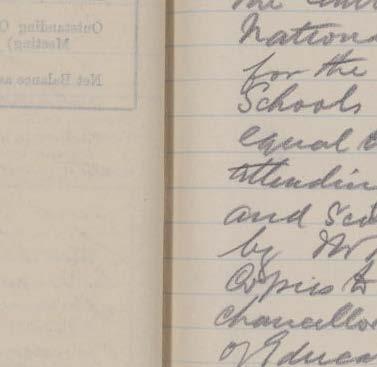 Outstanding O
Meeting)
Net Balance as
Nation
for the
Schools
equal
attendin
and Sci
by
Copies to
Chancello
of Educa